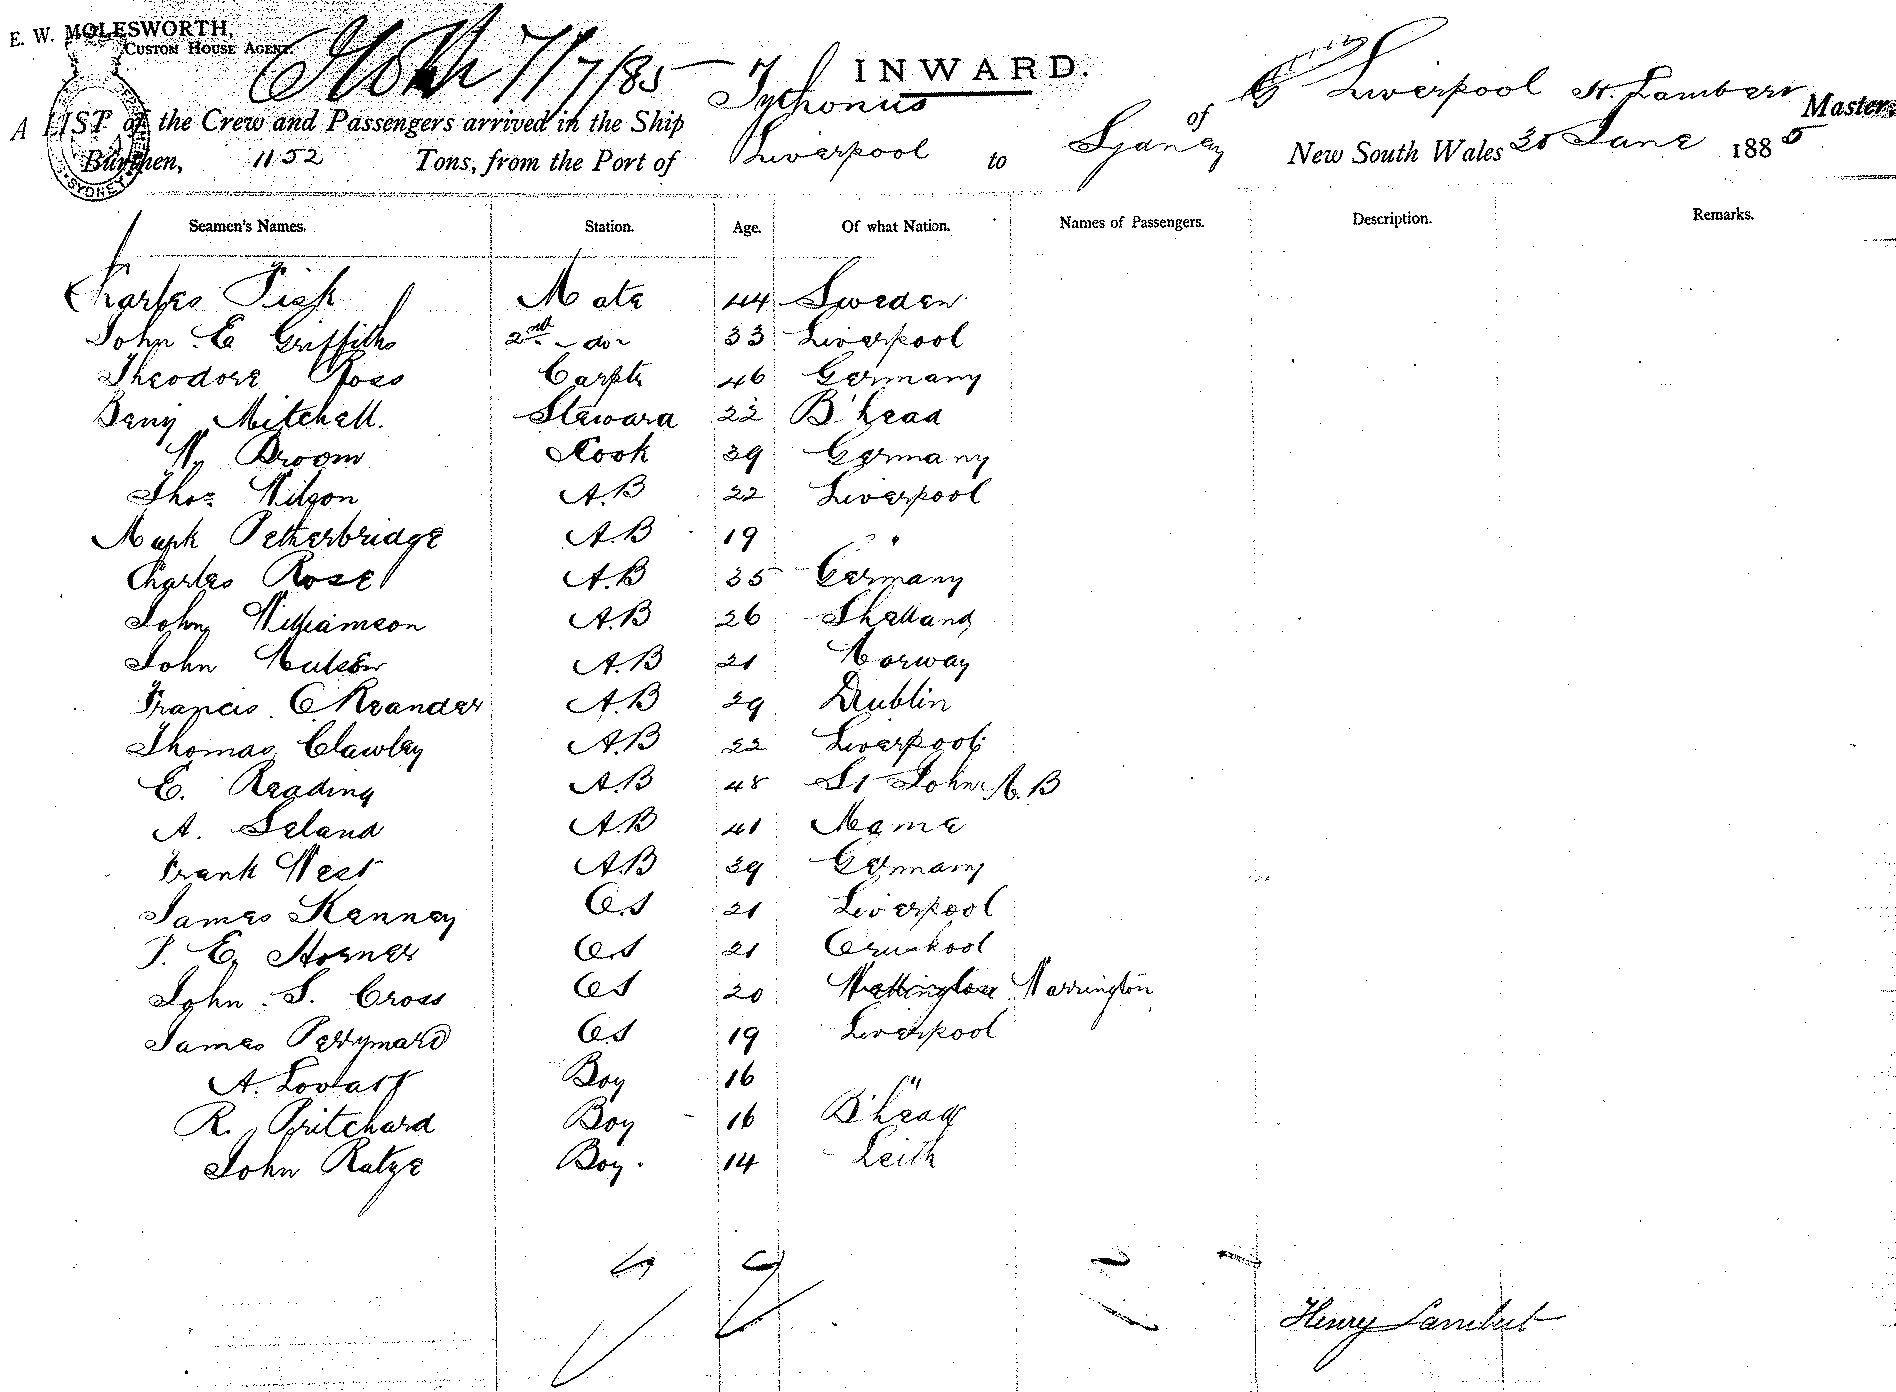 E. W. MOLESWORTH,
CUSTOM HOUSE AGENT.
7/7/85
INWARD.
A LIST of the Crew and Passengers arrived in the Ship Tythonus of Liverpool H. Lambert Master,
Burthen, 1152 Tons, from the Port of Liverpool to Sydney New South Wales 30 June 1885
SYDNEY
Seamen's Names. Station. Age. Of what Nation. Names of Passengers. Description. Remarks.
Charles Mate 44 Sweden
John E Griffiths 2nd - do - 33 Liverpool
Theodore Ross Carptr 46 Germany
Benj Mitchell. Steward 22 B'head
W. Broom Cook 39 Germany
Thos Wilson A.B 22 Liverpool
Mark Petherbridge A.B 19 "
Charles Rose A.B 35 Germany
John Williamson A.B 26 Shetland
John A.B 21 Norway
Francis A.B 29 Dublin
Thomas Clawley A.B 22 Liverpool
E. Reading A.B 48 St John N.B
A. Seland A.B 41
Frank West A.B 39 Germany
James Kenney O.S 21 Liverpool
J. E. Horner O.S 21 Ormskool
John S. Cross OS 20 Warrington
James Perryman OS 19 Liverpool
A. Boy 16 "
R. Pritchard Boy 16 B'head
John Ratze Boy. 14 Leith
Henry Lambert